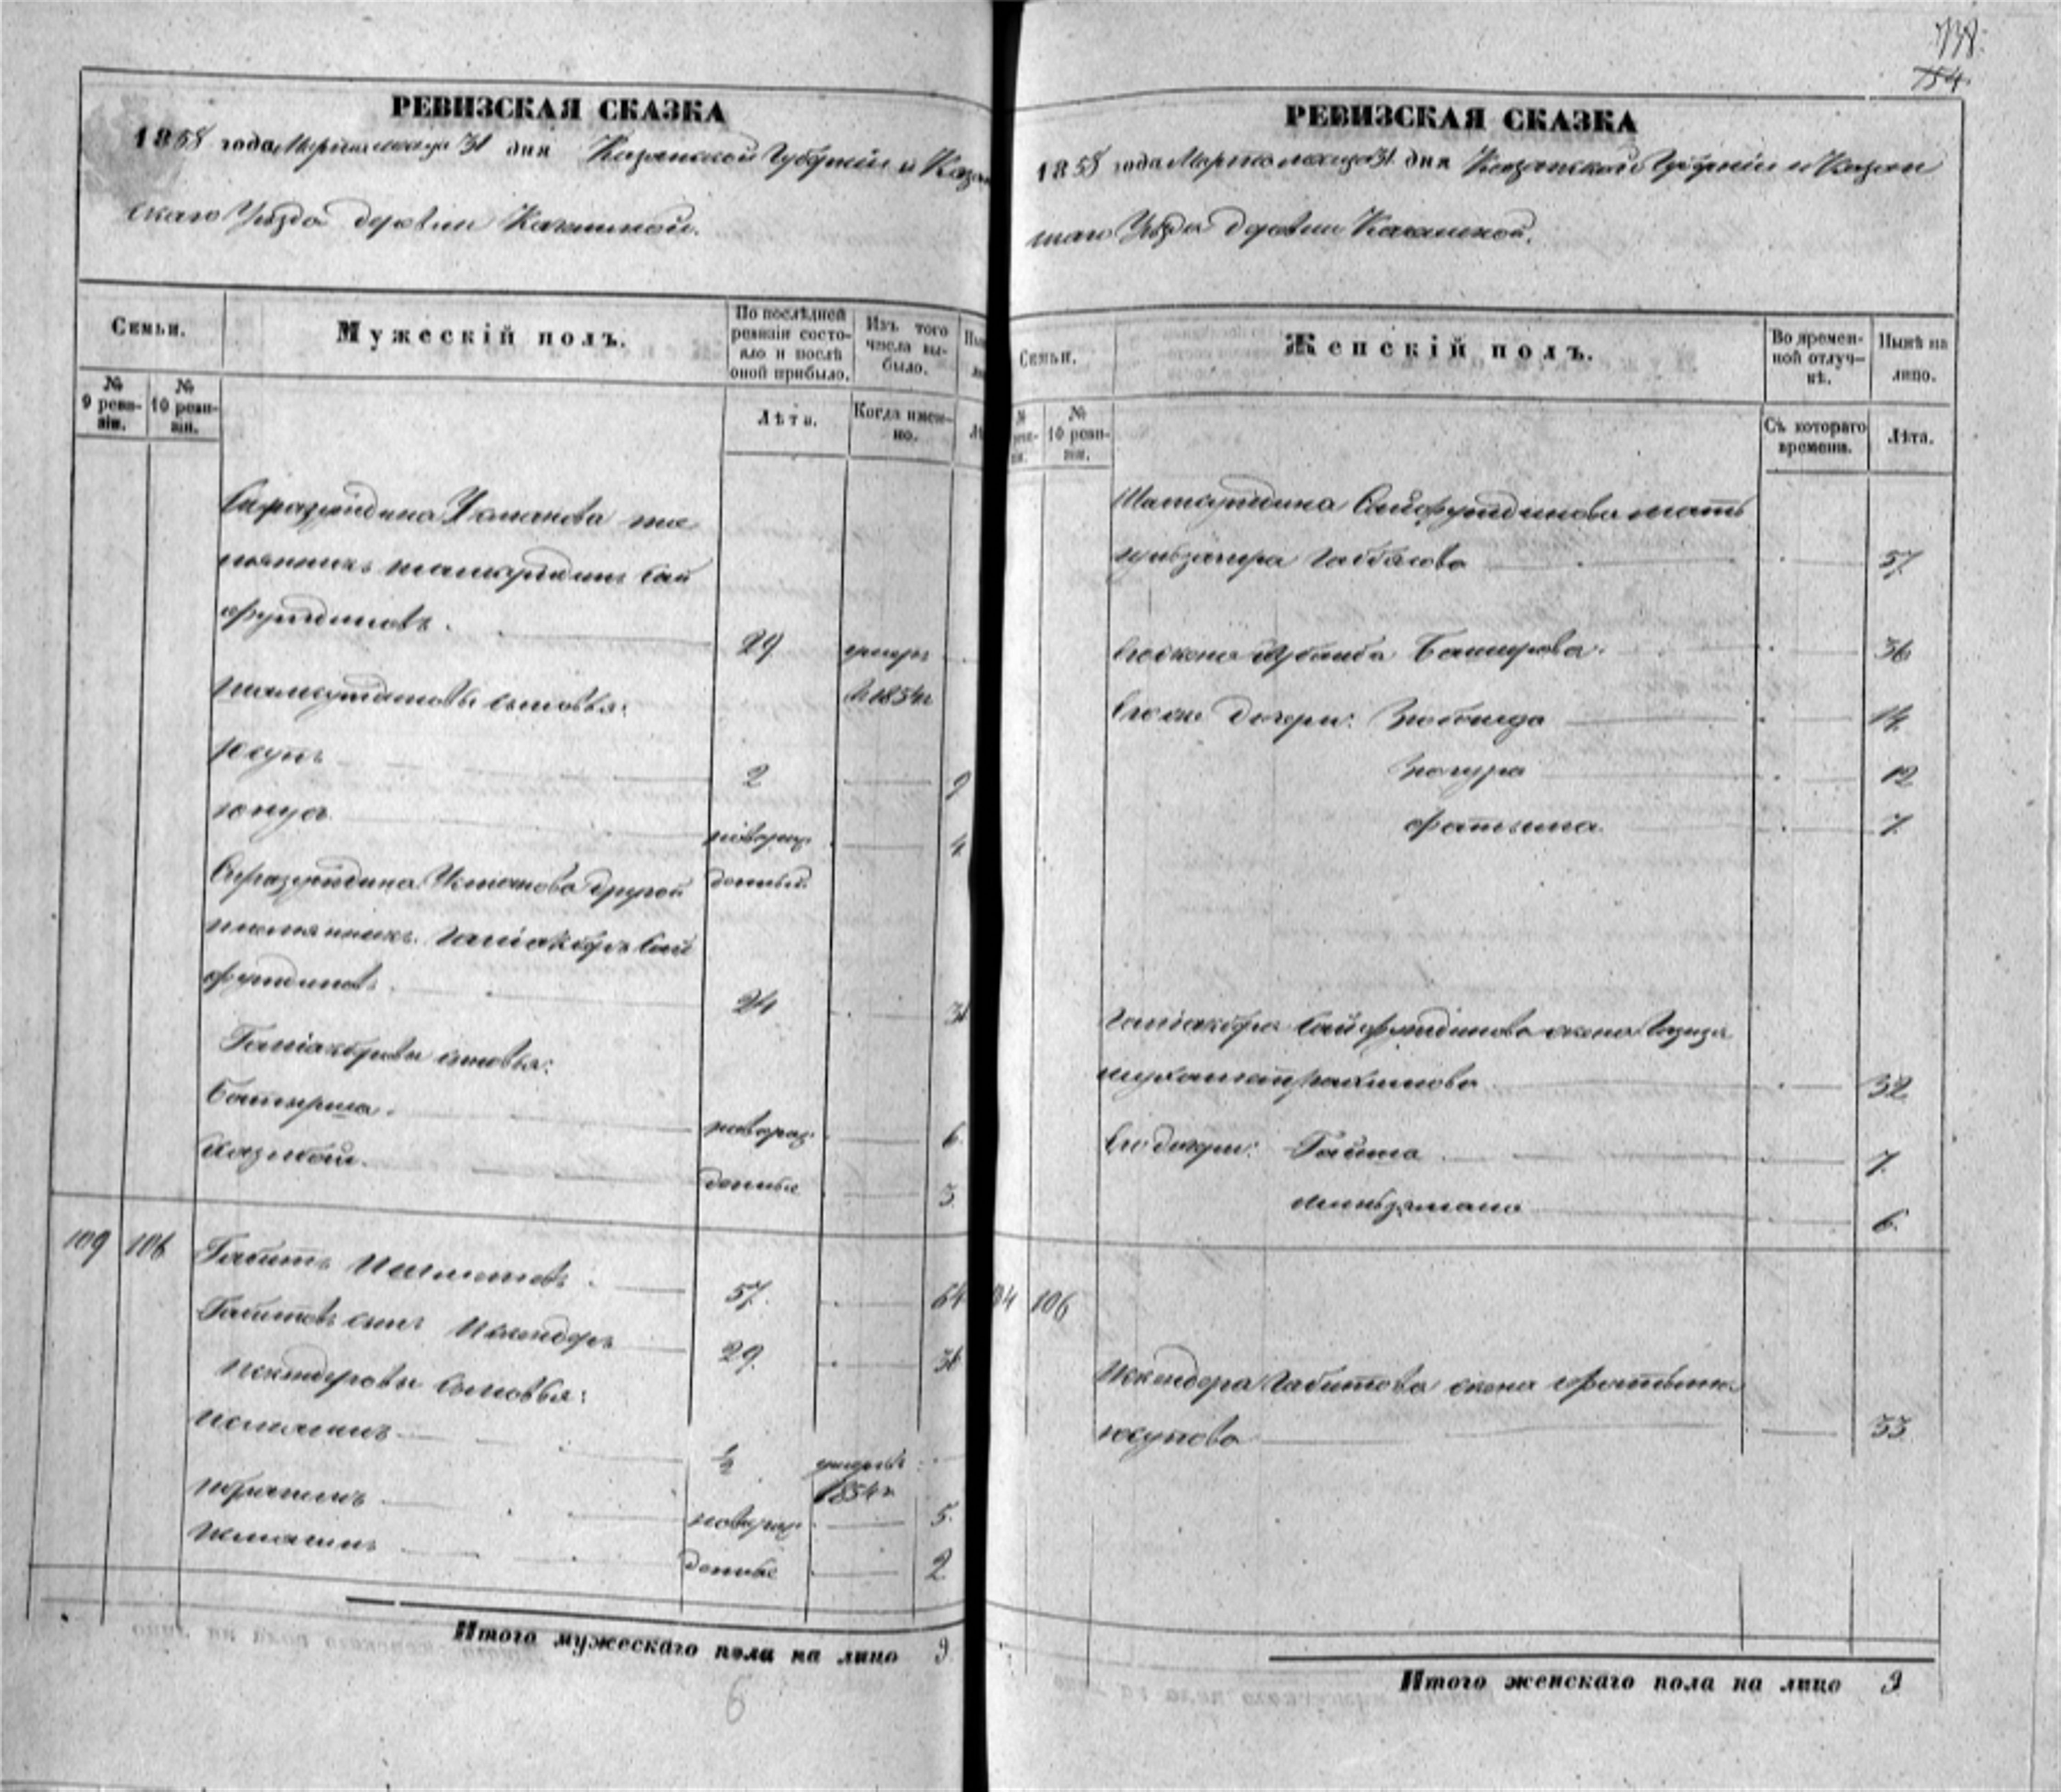 738.
754.
РЕВИЗСКАЯ СКАЗКА
1858 года Марта месяца 31 дня Казанской Губерніи и Казан
скаго Уѣзда деревни
Семьи.
Мужескій полъ.
По послѣдней ревизіи состояло и послѣ оной прибыло.
Изъ того числа выбыло.
№ 9 реви-
зіи.
№ 10 реви-
зіи.
Лѣта.
Когда имен-
но.
Сиразутдина Усманова пле
мянникъ Шамсутдинъ Сай
футдиновъ. 29 умеръ
въ 1854 г.
Шамсутдиновы сыновья:
Юсупъ 2 9
Юнусъ новорож 4
Сиразутдина Усманова другой денный
племянникъ Галіакберъ Сай
футдиновъ 24 31
Галіакберовы сыновья:
Батырша. новорож 6
денные 3
109 106 Габитъ 57. 64
Габитовъ сынъ Искендеръ 29. 36
Искендеровы сыновья:
½ умеръ въ
1854 г.
Ибрагимъ новорож 5.
денные 2
Итого мужескаго пола на лицо 9
6
РЕВИЗСКАЯ СКАЗКА
1858 года Марта месяца 31 дня Казанской Губерніи и Казан
скаго Уѣзда деревни
Семьи.
Женскій полъ.
Во времен-
ной отлуч-
кѣ.
Нынѣ на
лицо.
№ 10 реви-
зіи.
Съ котораго
времени.
Лѣта.
Шамсутдина Сайфутдинова мать
Габбясова 57.
Его жена Башырова. 36
Его же дочери: Зюбаида 14
Зюгура 12
Фатыма 7.
Галіакбера Сайфутдинова жена Газиза
Мухаметрахимова 32
Его дочери: Гайша 7.
Минзямала 6.
106
Искендера Габитова жена Фатыма
Юсупова 33
Итого женскаго пола на лицо 9